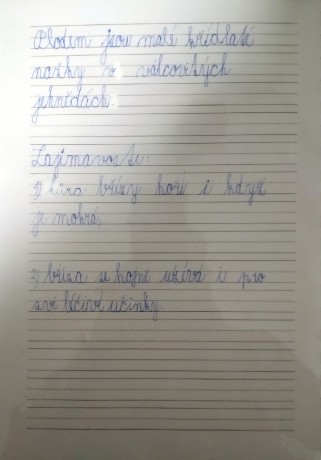 Plodem jsou malé křídlaté
nažky v válcovitých
jehnědách.
Zajímavosti:
1) kůra břízy hoří i když
je mokrá,
2) bříza se hojně užívá i pro
své léčivé účinky